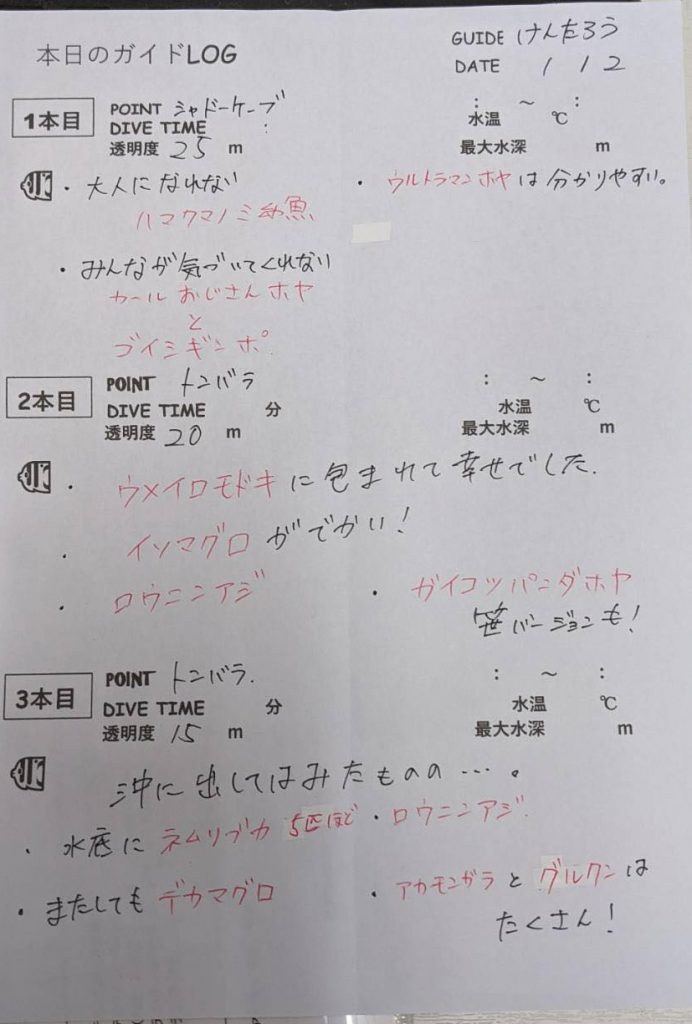 本日のガイドLOG
GUIDE けんたろう
DATE 1 12
1本目
POINT シャドーケーブ
DIVE TIME :
透明度 25 m
: ～ :
水温 ℃
最大水深 m
・大人になれない
ハマクマノミ幼魚
・ウルトラマンホヤは分かりやすい。
・みんなが気づいてくれない
カールおじさんホヤ
と
ゴイシギンポ
2本目
POINT トンバラ
DIVE TIME 分
透明度 20 m
: ～ :
水温 ℃
最大水深 m
・ウメイロモドキに包まれて幸せでした.
・イソマグロがでかい!
・ロウニンアジ
・ガイコツパンダホヤ
笹バージョンも!
3本目
POINT トンバラ.
DIVE TIME 分
透明度 15 m
: ～ :
水温 ℃
最大水深 m
沖に出してはみたものの…。
・水底にネムリブカ 5匹ほど
・ロウニンアジ
・またしてもデカマグロ
・アカモンガラとグルクンは
たくさん!